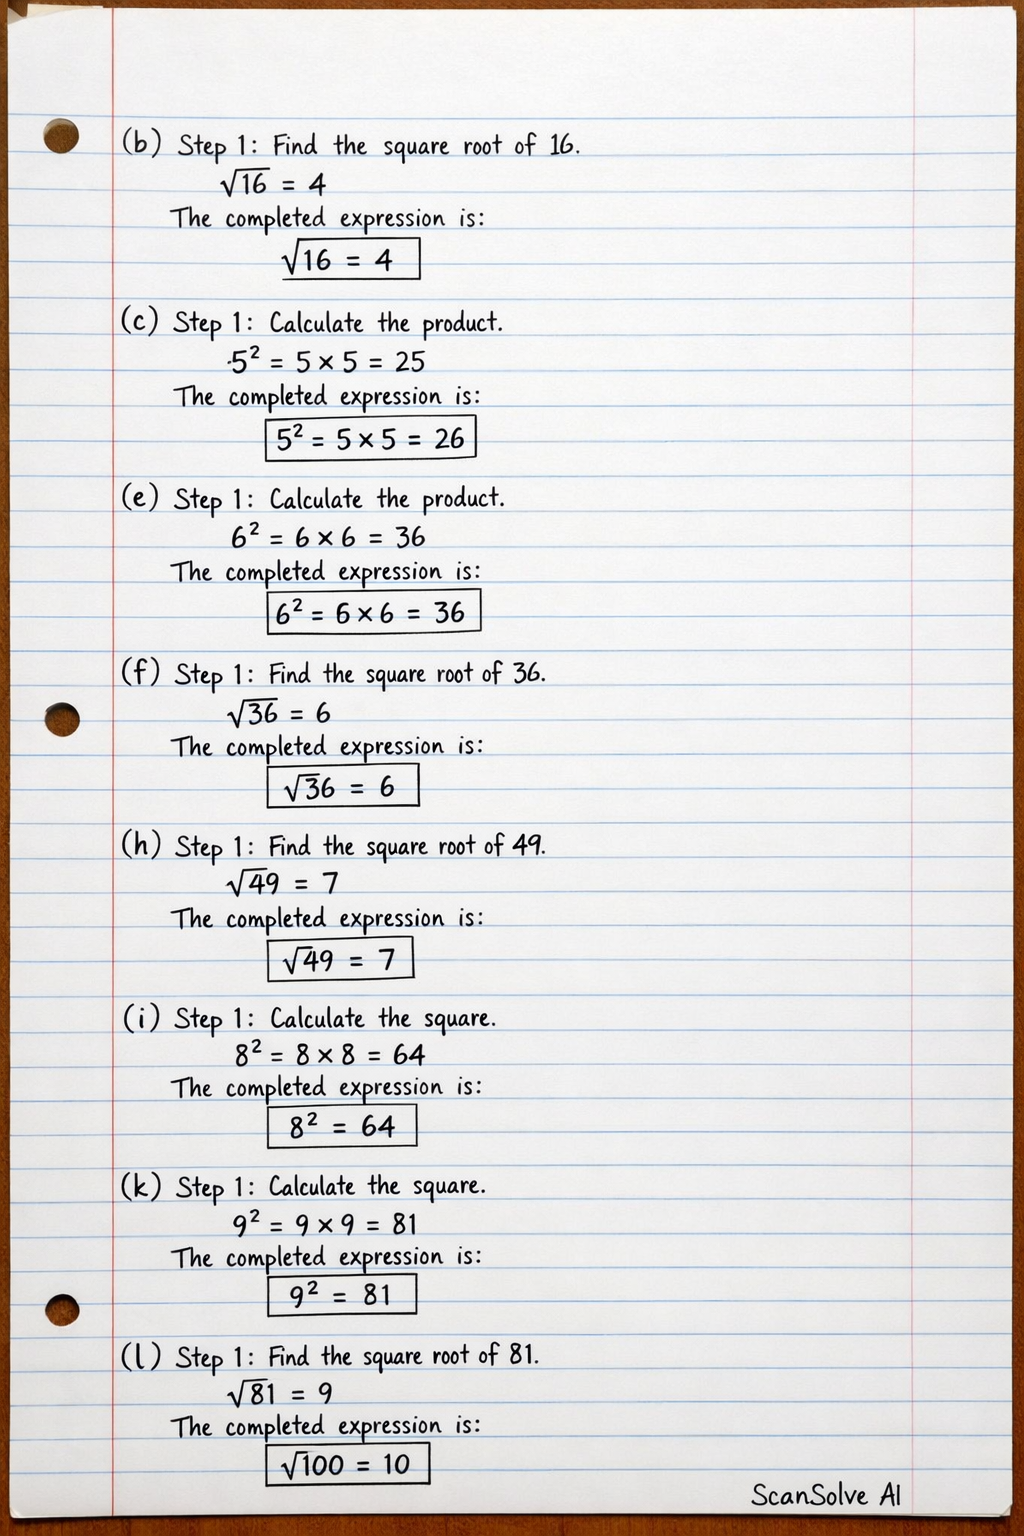 (b) Step 1: Find the square root of 16.
√16 = 4
The completed expression is:
√16 = 4
(c) Step 1: Calculate the product.
5² = 5 × 5 = 25
The completed expression is:
5² = 5 × 5 = 26
(e) Step 1: Calculate the product.
6² = 6 × 6 = 36
The completed expression is:
6² = 6 × 6 = 36
(f) Step 1: Find the square root of 36.
√36 = 6
The completed expression is:
√36 = 6
(h) Step 1: Find the square root of 49.
√49 = 7
The completed expression is:
√49 = 7
(i) Step 1: Calculate the square.
8² = 8 × 8 = 64
The completed expression is:
8² = 64
(k) Step 1: Calculate the square.
9² = 9 × 9 = 81
The completed expression is:
9² = 81
(l) Step 1: Find the square root of 81.
√81 = 9
The completed expression is:
√100 = 10
ScanSolve AI